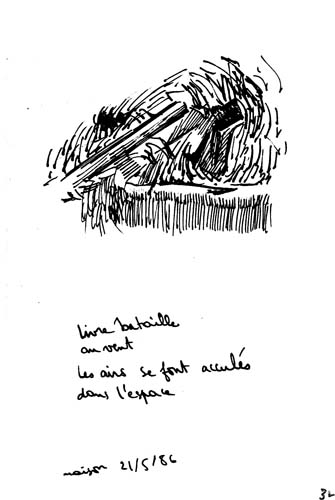 livre bataille
au vent
les airs se font acculés
dans l'espace
maison 21/5/86
32